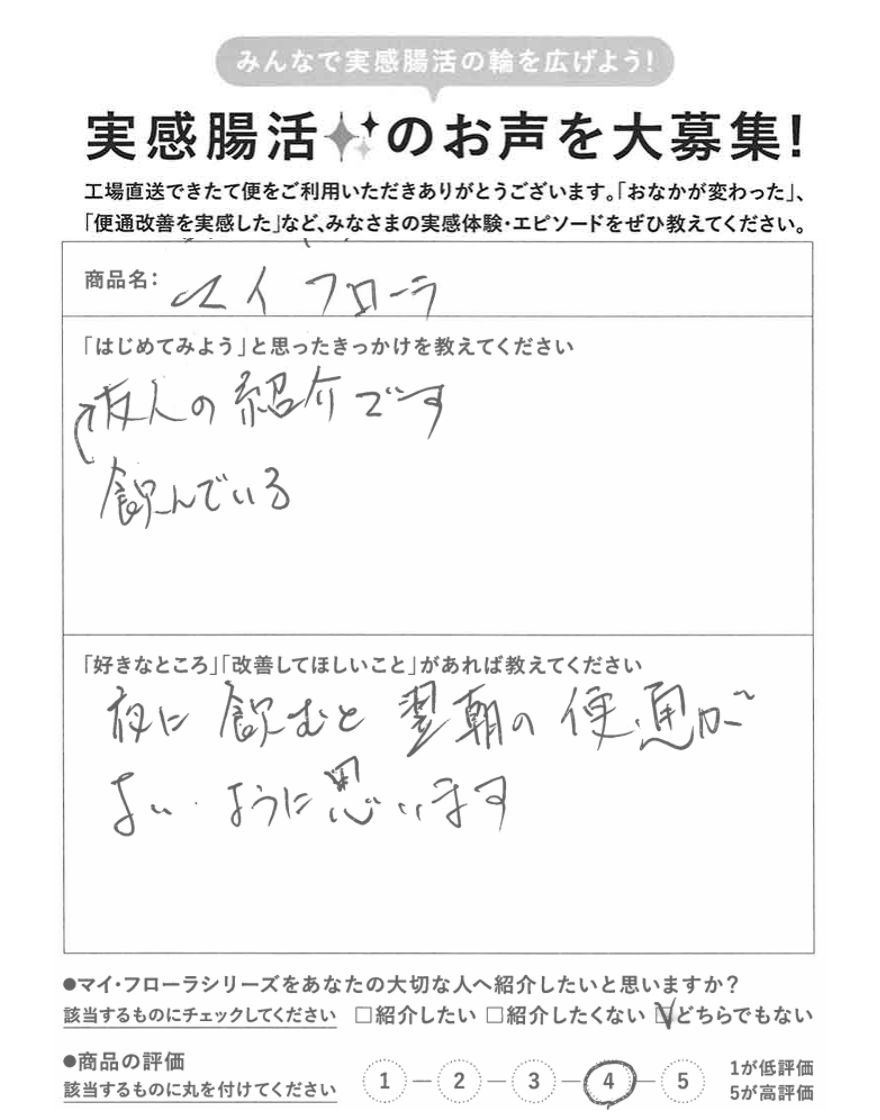 みんなで実感腸活の輪を広げよう!
実感腸活のお声を大募集!
工場直送できたて便をご利用いただきありがとうございます。「おなかが変わった」、
「便通改善を実感した」など、みなさまの実感体験・エピソードをぜひ教えてください。
商品名: マイフローラ
「はじめてみよう」と思ったきっかけを教えてください
友人の紹介です
飲んでいる
「好きなところ」「改善してほしいこと」があれば教えてください
夜に飲むと翌朝の便通が
よいように思います
●マイ・フローラシリーズをあなたの大切な人へ紹介したいと思いますか?
該当するものにチェックしてください □紹介したい □紹介したくない ☑どちらでもない
●商品の評価
該当するものに丸を付けてください 1 — 2 — 3 — 4 — 5
1が低評価
5が高評価